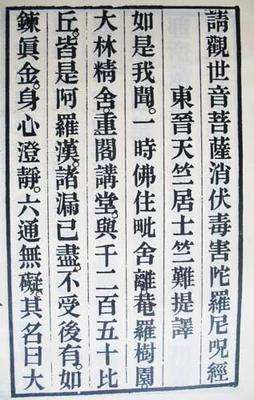 請觀世音菩薩消伏毒害陀羅尼呪經
東晉天竺居士竺難提譯
如是我聞。一時佛住毗舍離菴羅樹園
大林精舍。重閣講堂。與千二百五十比
丘。皆是阿羅漢。諸漏已盡。不受後有。如
鍊眞金。身心澄靜。六通無礙。其名曰大